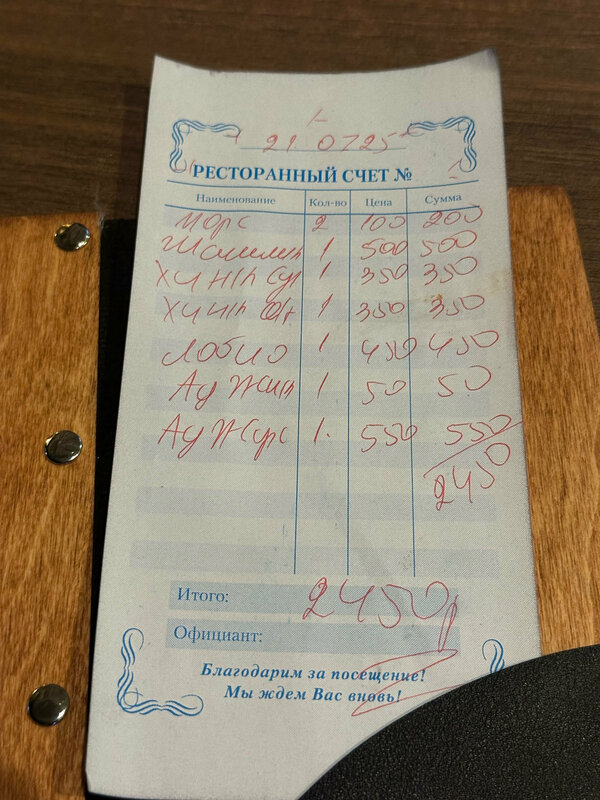 21.07.25
РЕСТОРАННЫЙ СЧЕТ № 1
Наименование Кол-во Цена Сумма
Морс 2 100 200
1 500 500
1 350 350
1 350 350
Лобио 1 450 450
1 50 50
1 550 550
2450
Итого: 2450р
Официант:
Благодарим за посещение!
Мы ждем Вас вновь!